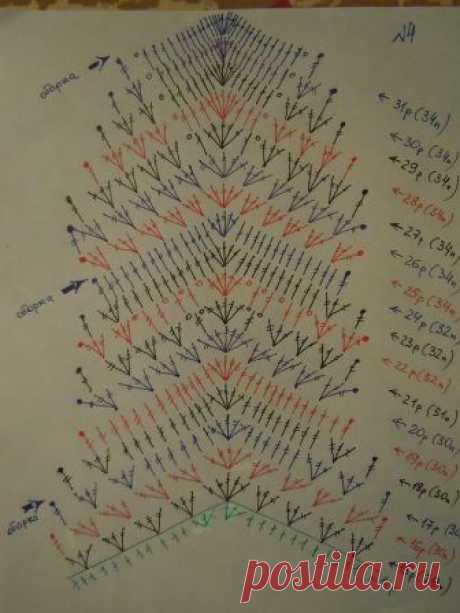 №4
сборка
← 31р (34п)
← 30р (34п)
← 29р (34п)
← 28р (34п)
← 27р (34п)
← 26р (34п)
← 25р (34п)
← 24р (32п)
← 23р (32п)
← 22р (32п)
← 21р (31п)
← 20р (30п)
← 19р (30п)
← 18р (30п)
← 17р (30
← 16р (30п)
сборка
сборка
postila.ru